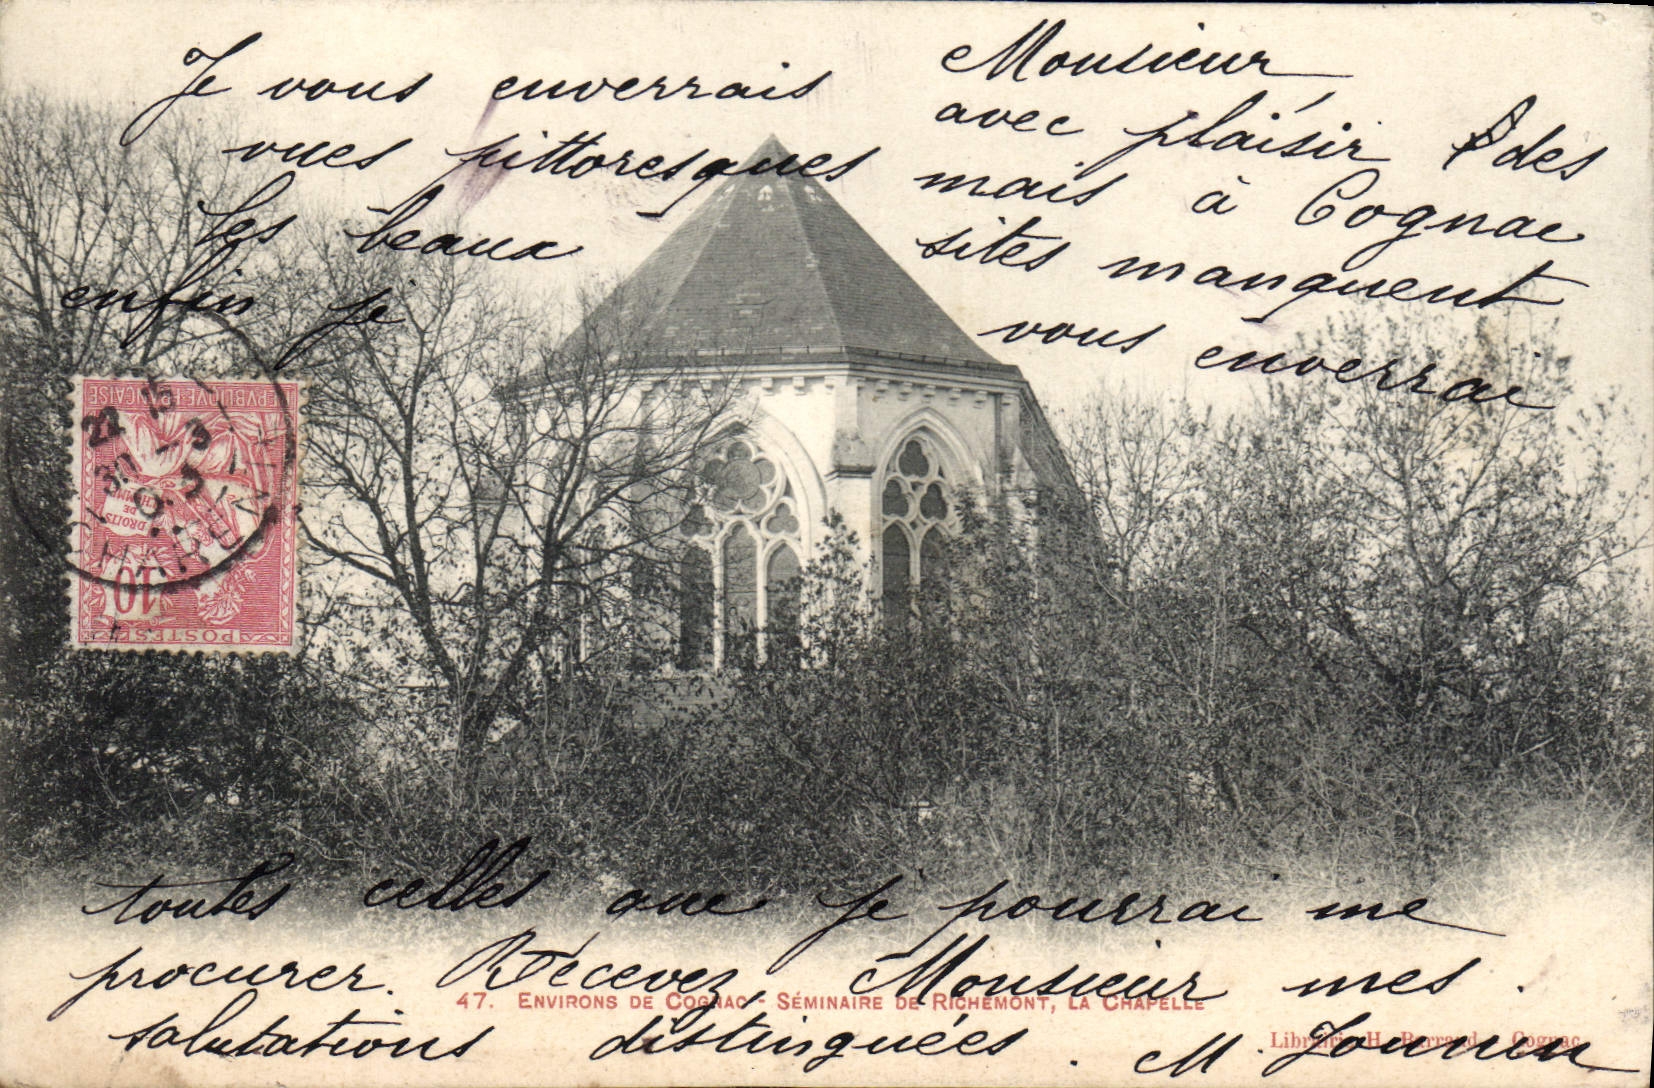 Monsieur
Je vous enverrais avec plaisir des
vues pittoresques mais à Cognac
les beaux sites manquent
enfin je vous enverrai
RÉPUBLIQUE FRANÇAISE
22 15
30 - 3
DROITS DE L'HOMME
10
POSTES
toutes celles que je pourrai me
procurer. Recevez, Monsieur mes
47. ENVIRONS DE COGNAC - SÉMINAIRE DE RICHEMONT, LA CHAPELLE
salutations distinguées. M.
Librairie H. Barraud, Cognac